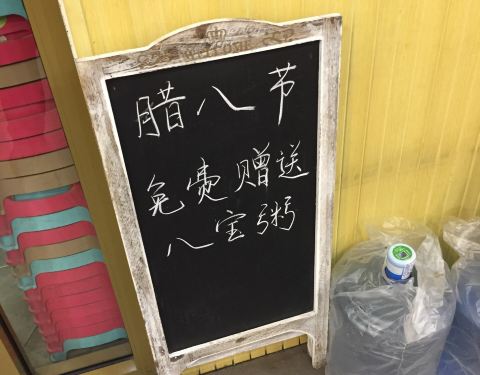 腊八节
免费赠送
八宝粥